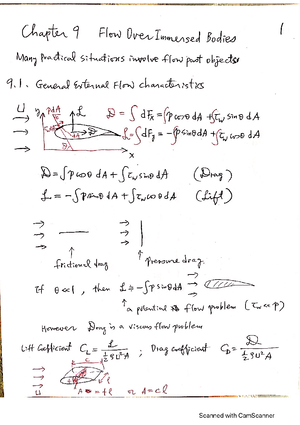 1
Chapter 9 Flow Over Immersed Bodies
Many Practical situations involve flow past objects
9.1. General External Flow characteristics
U y pdA L D = ∫ dFx = ∫p cosθ dA + ∫τw sinθ dA
dA D L = ∫ dFy = -∫p sinθ dA + ∫τw cosθ dA
θ x
D = ∫p cosθ dA + ∫τw sinθ dA (Drag)
L = -∫p sinθ dA + ∫τw cosθ dA (Lift)
frictional drag pressure drag
If θ<<1, then L ≑ -∫p sinθ dA
a potential flow problem (τw << p)
However Drag is a viscous flow problem
Lift Coefficient CL = L / ½ρU²A ; Drag coefficient CD = D / ½ρU²A
U c l
A = cl
Scanned with CamScanner